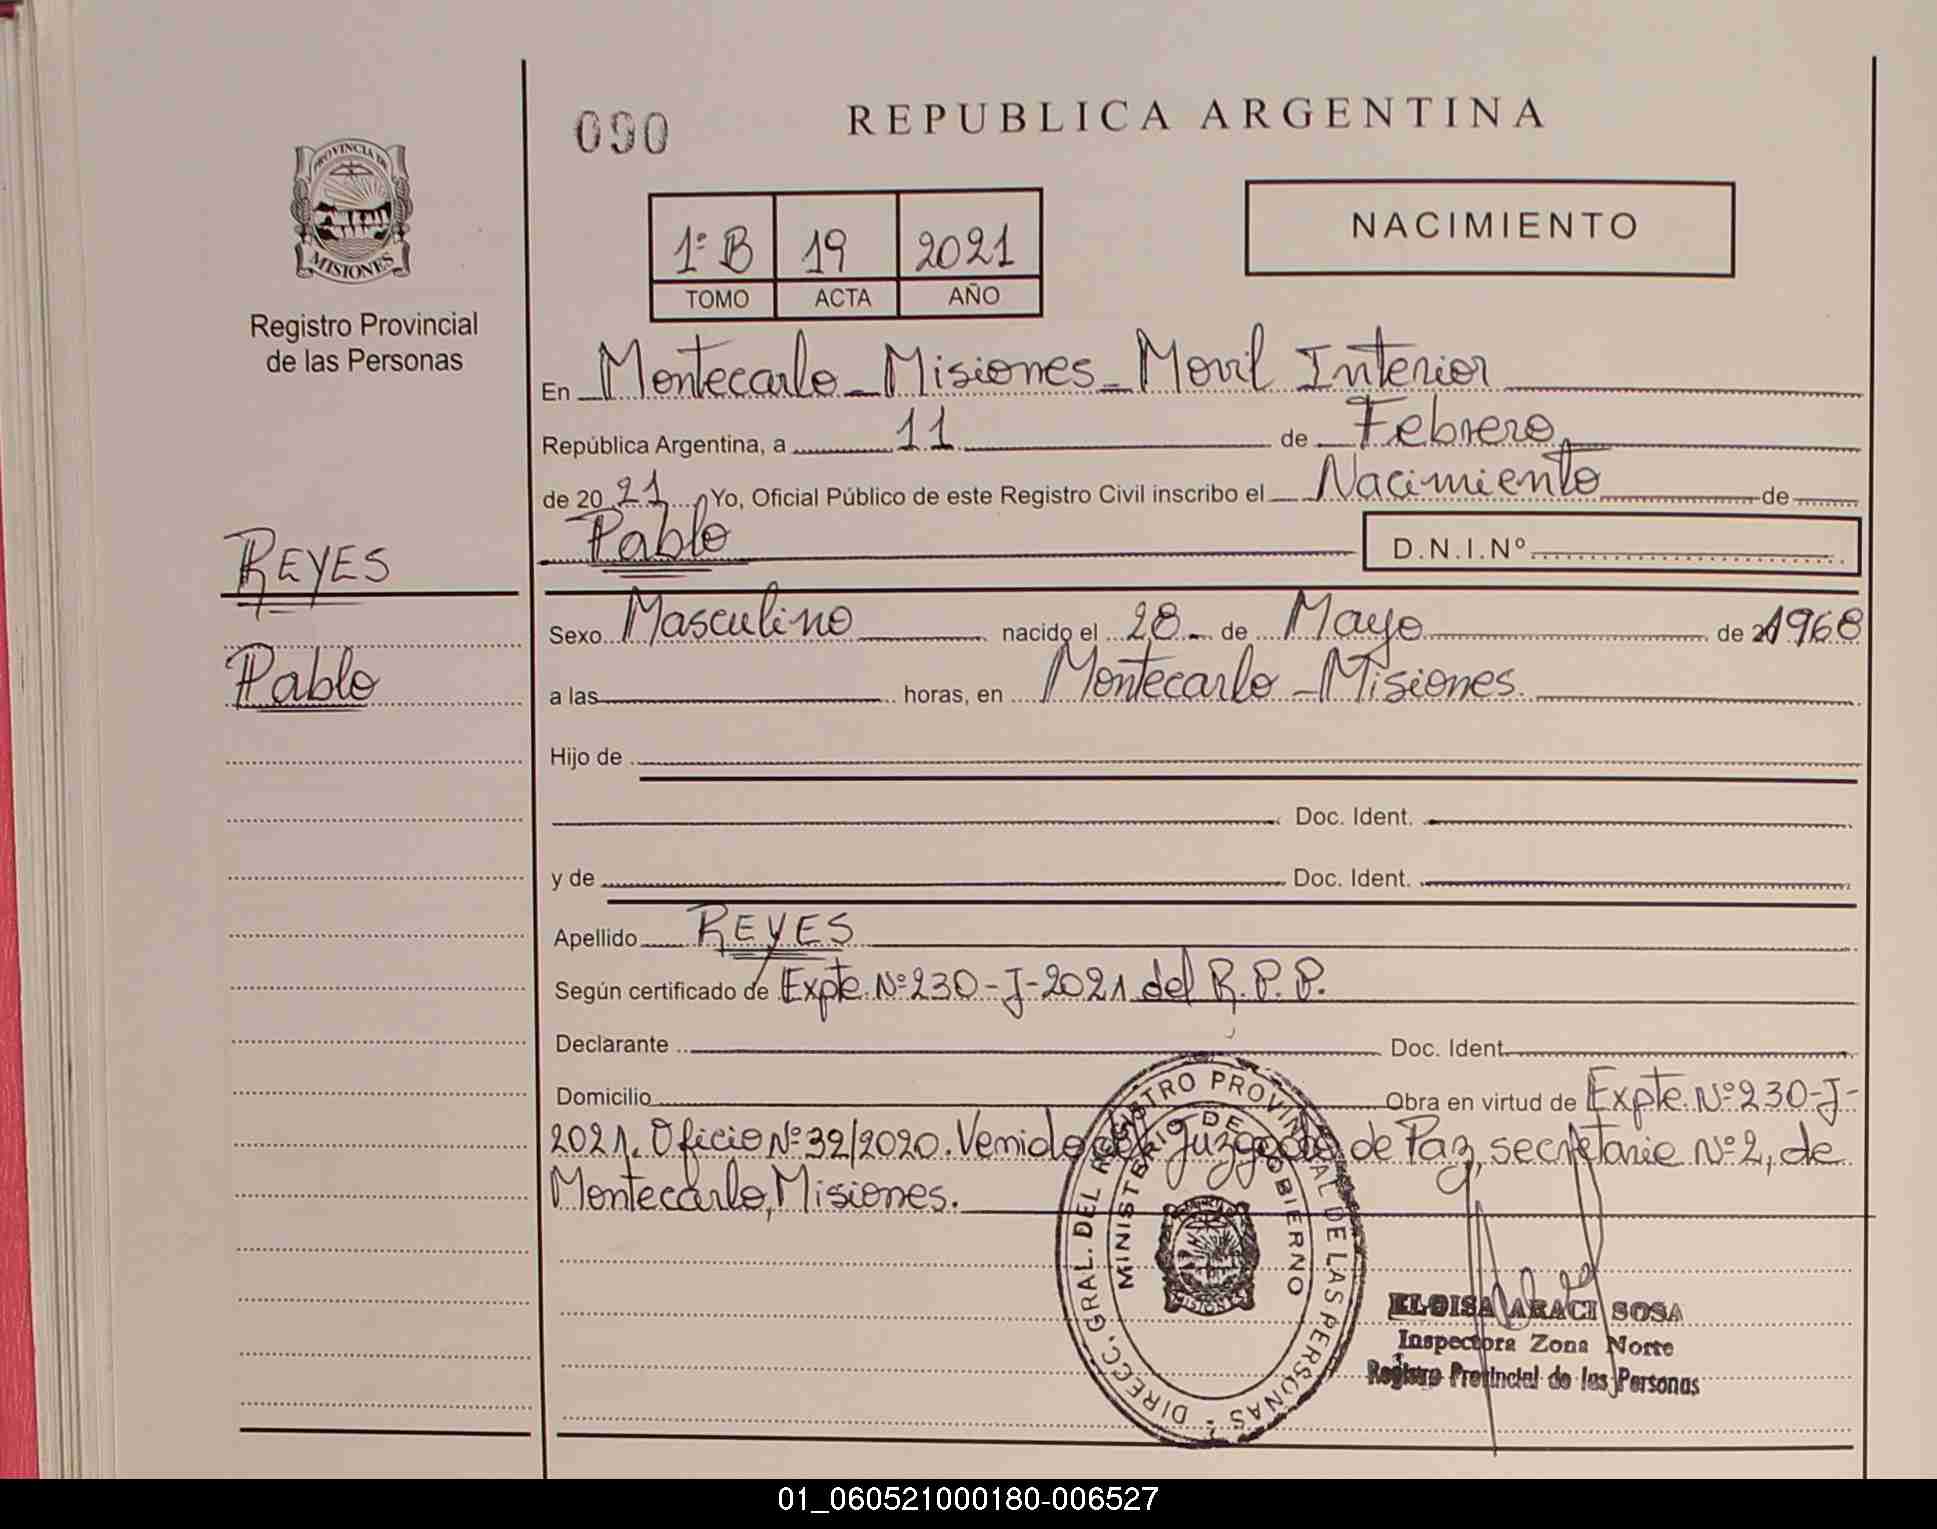 090
REPUBLICA ARGENTINA
PROVINCIA DE
MISIONES
Registro Provincial
de las Personas
1º B 19 2021
TOMO ACTA AÑO
NACIMIENTO
En Montecarlo - Misiones - Movil Interior
República Argentina, a 11 de Febrero
de 20 21 Yo, Oficial Público de este Registro Civil inscribo el Nacimiento de
Pablo D.N.I.Nº
REYES
Pablo
Sexo Masculino nacido el 28 de Mayo de 1968
a las horas, en Montecarlo - Misiones.
Hijo de
Doc. Ident.
y de Doc. Ident.
Apellido REYES
Según certificado de Expte. Nº 230-J-2021 del R.P.P.
Declarante Doc. Ident.
Domicilio Obra en virtud de Expte. Nº 230-J-
2021. Oficio Nº 32/2020. Venido del Juzgado de Paz, secretarie Nº 2, de
Montecarlo, Misiones.
DIRECC. GRAL. DEL REGISTRO PROVINCIAL DE LAS PERSONAS -
MINISTERIO DE GOBIERNO
MISIONES
ELOISA ARACI SOSA
Inspectora Zona Norte
Registro Provincial de las Personas
01_060521000180-006527